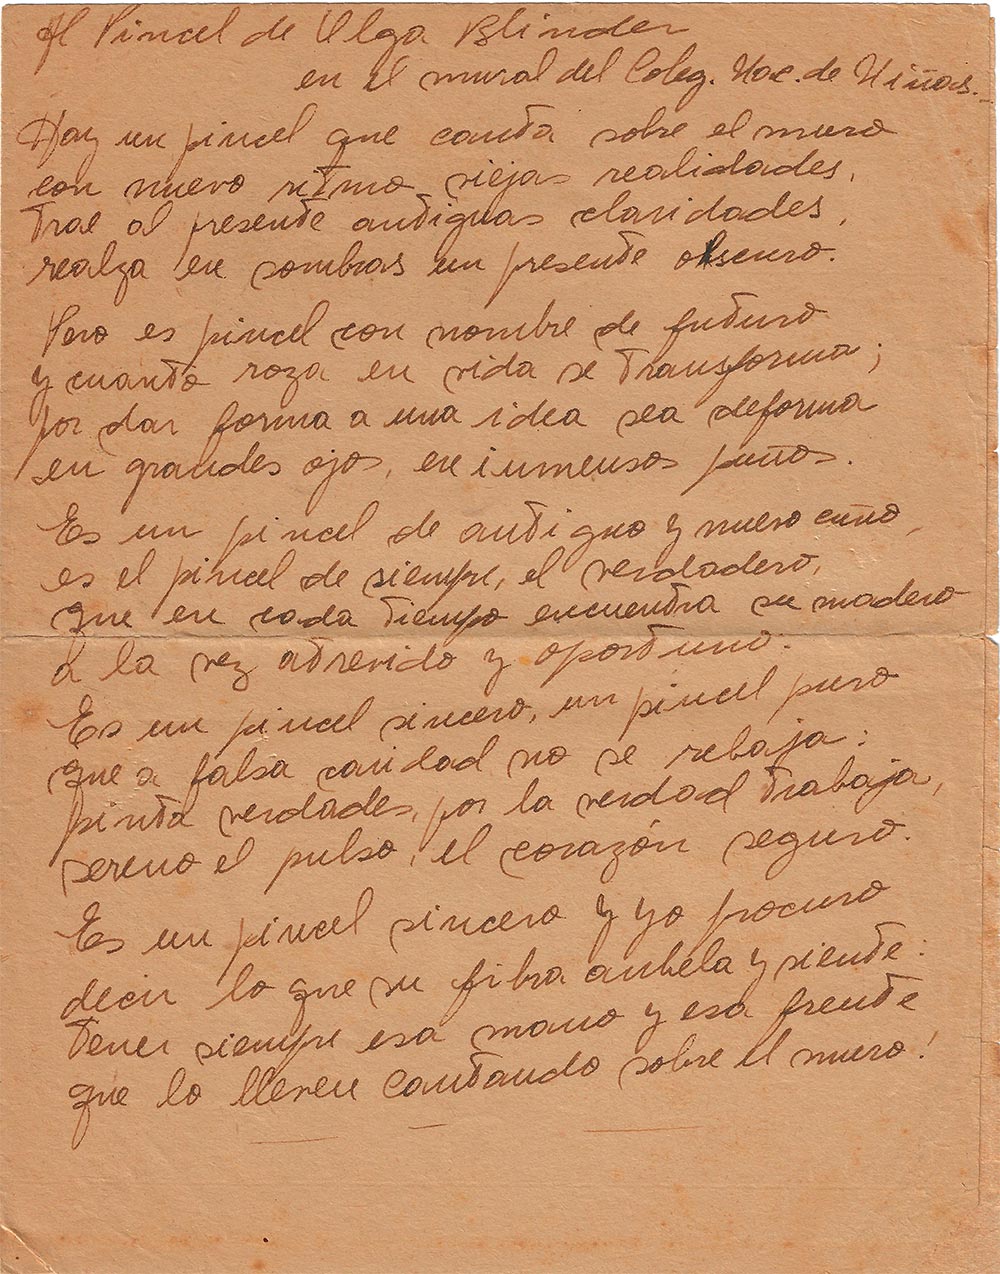 Al Pincel de Olga Blinder
en el mural del Coleg. Nac. de Niñas.
Hay un pincel que canta sobre el muro
con nuevo ritmo viejas realidades,
trae al presente antiguas claridades,
realza en sombras un presente obscuro.
Pero es pincel con nombre de futuro
y cuanto roza en vida se transforma;
por dar forma a una idea sea deforma
en grandes ojos, en inmensos puños.
Es un pincel de antiguo y nuevo cuño,
es el pincel de siempre, el verdadero,
que en cada tiempo encuentra su madero
a la vez atrevido y oportuno.
Es un pincel sincero, un pincel puro
que a falsa caridad no se rebaja:
pinta verdades, por la verdad trabaja,
sereno el pulso, el corazón seguro.
Es un pincel sincero y yo procuro
decir lo que su fibra anhela y siente:
tener siempre esa mano y esa frente
que lo lleven cantando sobre el muro!